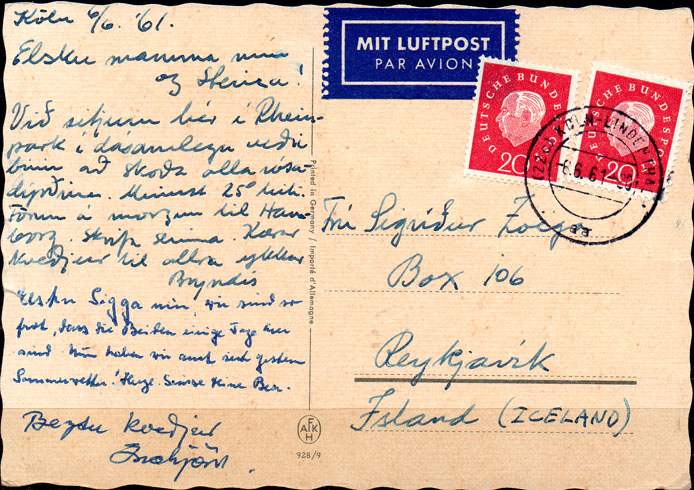 Köln 6/6. '61.
Elsku mamma mín
og Steina!
Við sitjum hér í Rhein-
park í dásamlegu veðri
búin að skoða alla rósa-
dýrðina. Minnst 25° hiti.
Förum á morgun til Ham-
borg. Skrifa seinna. Kærar
kveðjur til allra ykkar
Bryndís
Elsku Sigga mín, wir sind so
froh, dass die Beiden einige Tage hier
sind. Nun haben wir auch seit gestern
Sommerwetter! Herzl. Grüsse
Beztu kveðjur
MIT LUFTPOST
PAR AVION
DEUTSCHE BUNDESPOST
20
DEUTSCHE BUNDESPOST
20
KÖLN-LINDENTHAL
-6.6.61
Printed in Germany / Importé d'Allemagne
Frú Sigríður Zoega
Box 106
Reykjavík
Ísland (ICELAND)
AFKH
928/9